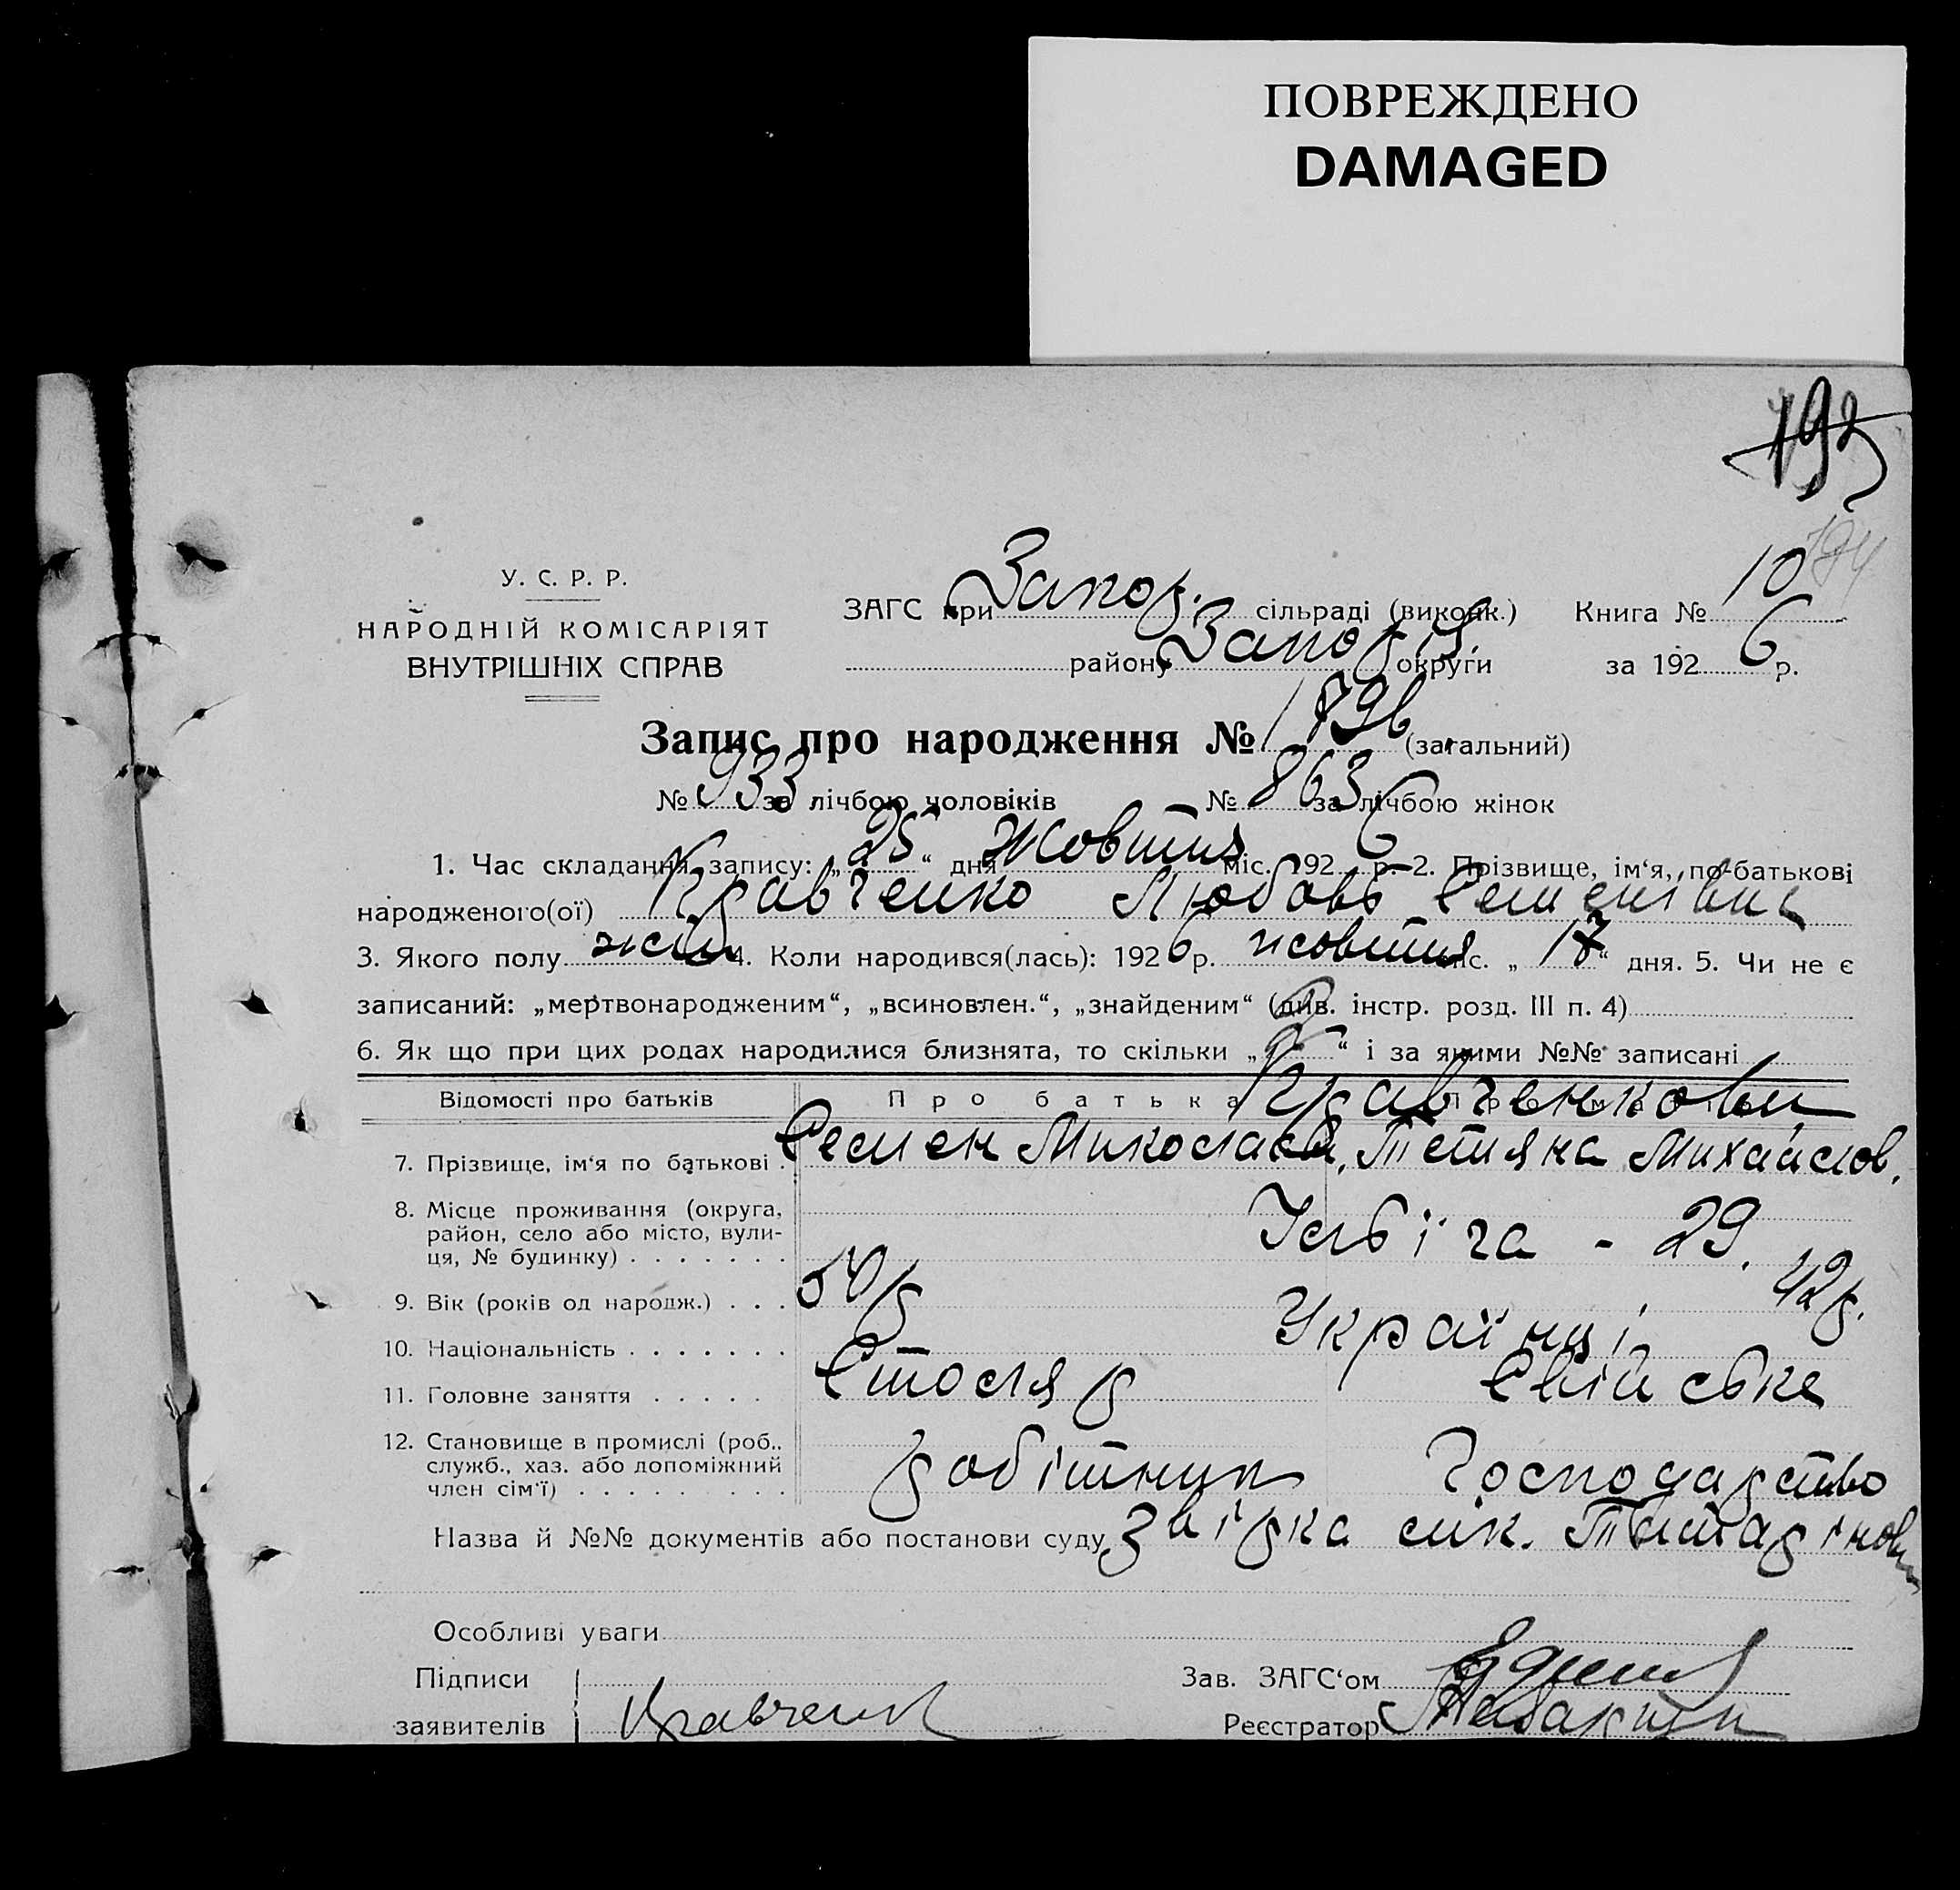 ПОВРЕЖДЕНО
DAMAGED
192
194
У. С. Р. Р.
НАРОДНІЙ КОМІСАРІЯТ
ВНУТРІШНІХ СПРАВ
ЗАГС при Запор. сільраді (виконк.) Книга № 10
району Запоріз. округи за 1926 р.
Запис про народження № 1796 (загальний)
№ 933 за лічбою чоловіків № 863 за лічбою жінок
1. Час складання запису: „25“ дня Жовтня міс. 1926 р. 2. Прізвище, ім‘я, по-батькові
народженого(ої) Кравченко Любовь Семенівна
3. Якого полу жін 4. Коли народився(лась): 1926 р. жовтня міс. „17“ дня. 5. Чи не є
записаний: „мертвонародженим“, „всиновлен.“, „знайденим“ (див. інстр. розд. III п. 4)
6. Як що при цих родах народилися близнята, то скільки „ “ і за якими №№ записані
Відомості про батьків Про батька Про матір
Кравченкови
7. Прізвище, ім‘я по батькові . Семен Миколаєв, Тетяна Михайлов.
8. Місце проживання (округа,
район, село або місто, вули-
ця, № будинку) . . . . . . . Ілліча - 29.
9. Вік (років од народж.) . . . 50 р 42 р.
10. Національність . . . . . . . Українці
11. Головне заняття . . . . . Столяр Свійське
12. Становище в промислі (роб.,
служб., хаз. або допоміжний
член сім‘ї) . . . . . . . . . робітник Господарство
Назва й №№ документів або постанови суду Звірка
Особливі уваги
Підписи
заявителів Кравченк
Зав. ЗАГС‘ом
Реєстратор